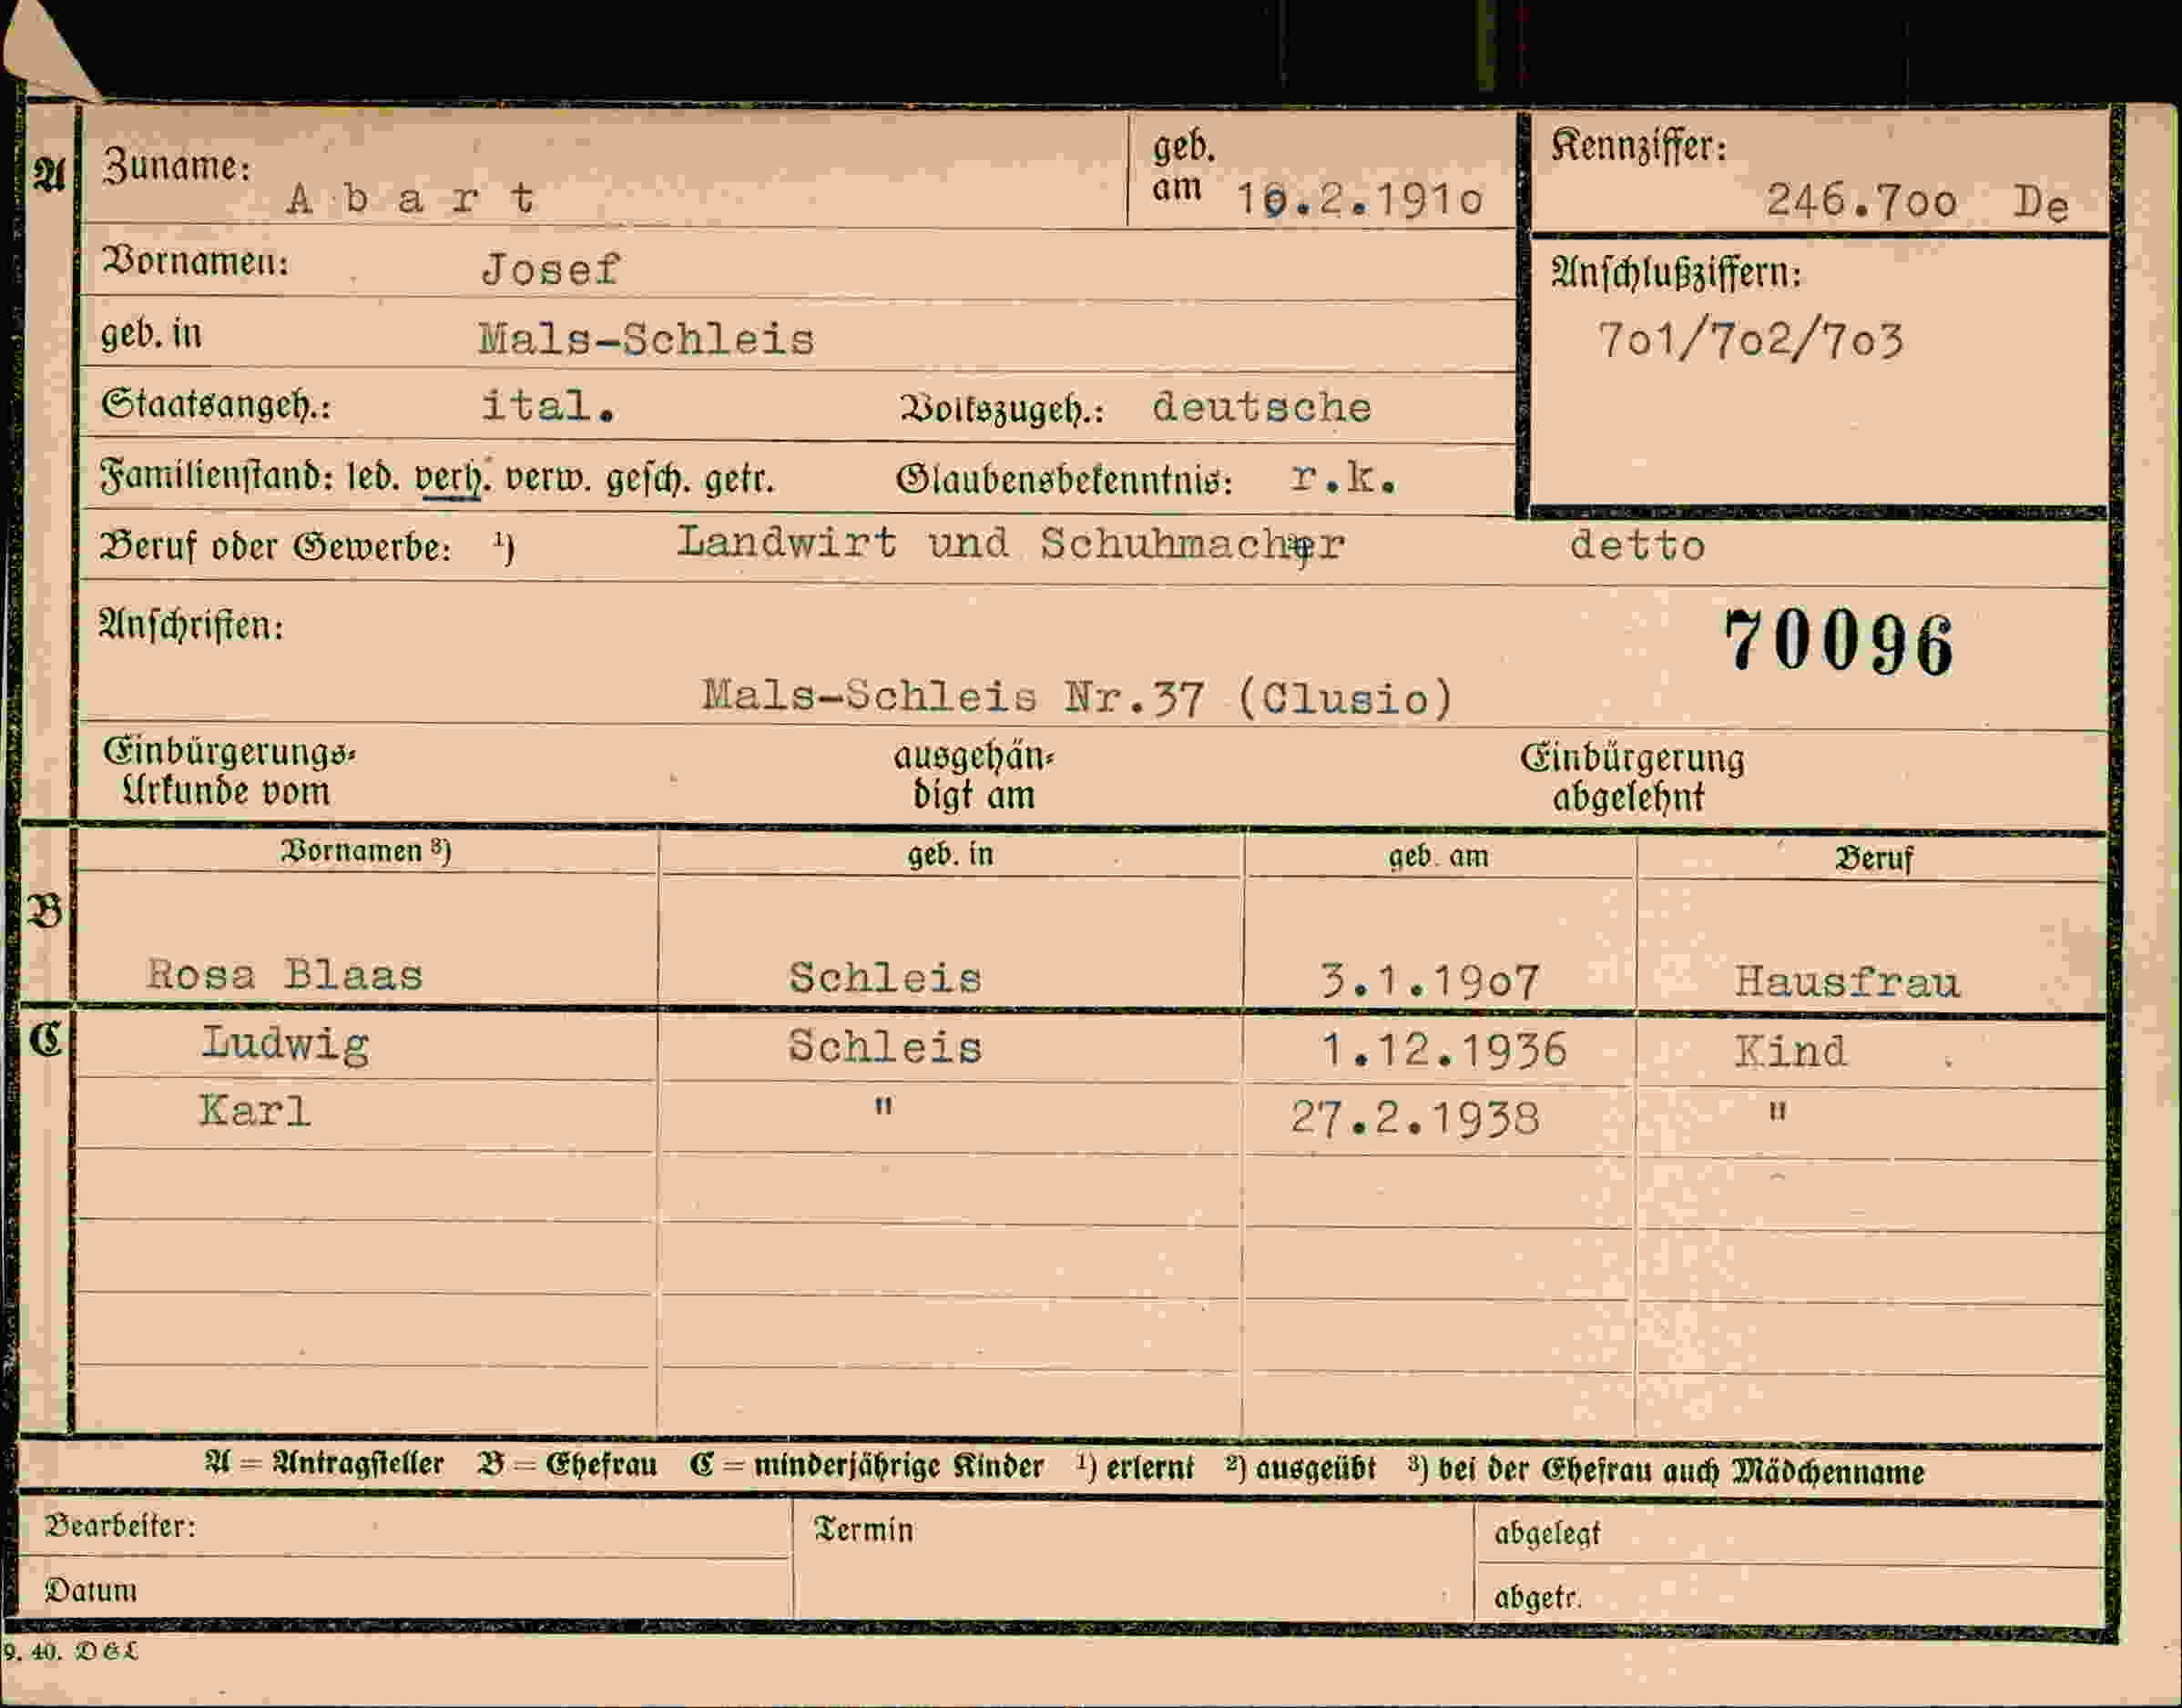 A Zuname: Abart geb. am 10.2.1910 Kennziffer: 246.700 De
Vornamen: Josef Anschlußziffern:
geb. in Mals-Schleis 701/702/703
Staatsangeh.: ital. Volkszugeh.: deutsche
Familienstand: led. verh. verw. gesch. getr. Glaubensbekenntnis: r.k.
Beruf oder Gewerbe: ¹) Landwirt und Schuhmacher detto
Anschriften: 70096
Mals-Schleis Nr.37 (Clusio)
Einbürgerungs- ausgehän- Einbürgerung
Urkunde vom digt am abgelehnt
Vornamen ³) geb. in geb. am Beruf
B Rosa Blaas Schleis 3.1.1907 Hausfrau
C Ludwig Schleis 1.12.1936 Kind
Karl " 27.2.1938 "
A = Antragsteller B = Ehefrau C = minderjährige Kinder ¹) erlernt ²) ausgeübt ³) bei der Ehefrau auch Mädchenname
Bearbeiter: Termin abgelegt
Datum abgetr.
9. 40. DGL